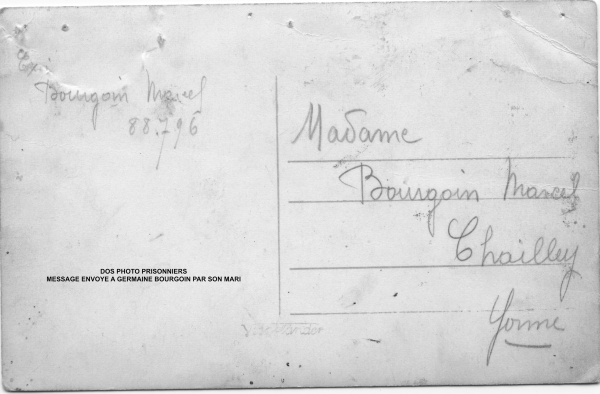 Ex.
Bourgoin Marcel
88.796
Madame
Bourgoin Marcel
Chailley
Yonne
DOS PHOTO PRISONNIERS
MESSAGE ENVOYE A GERMAINE BOURGOIN PAR SON MARI